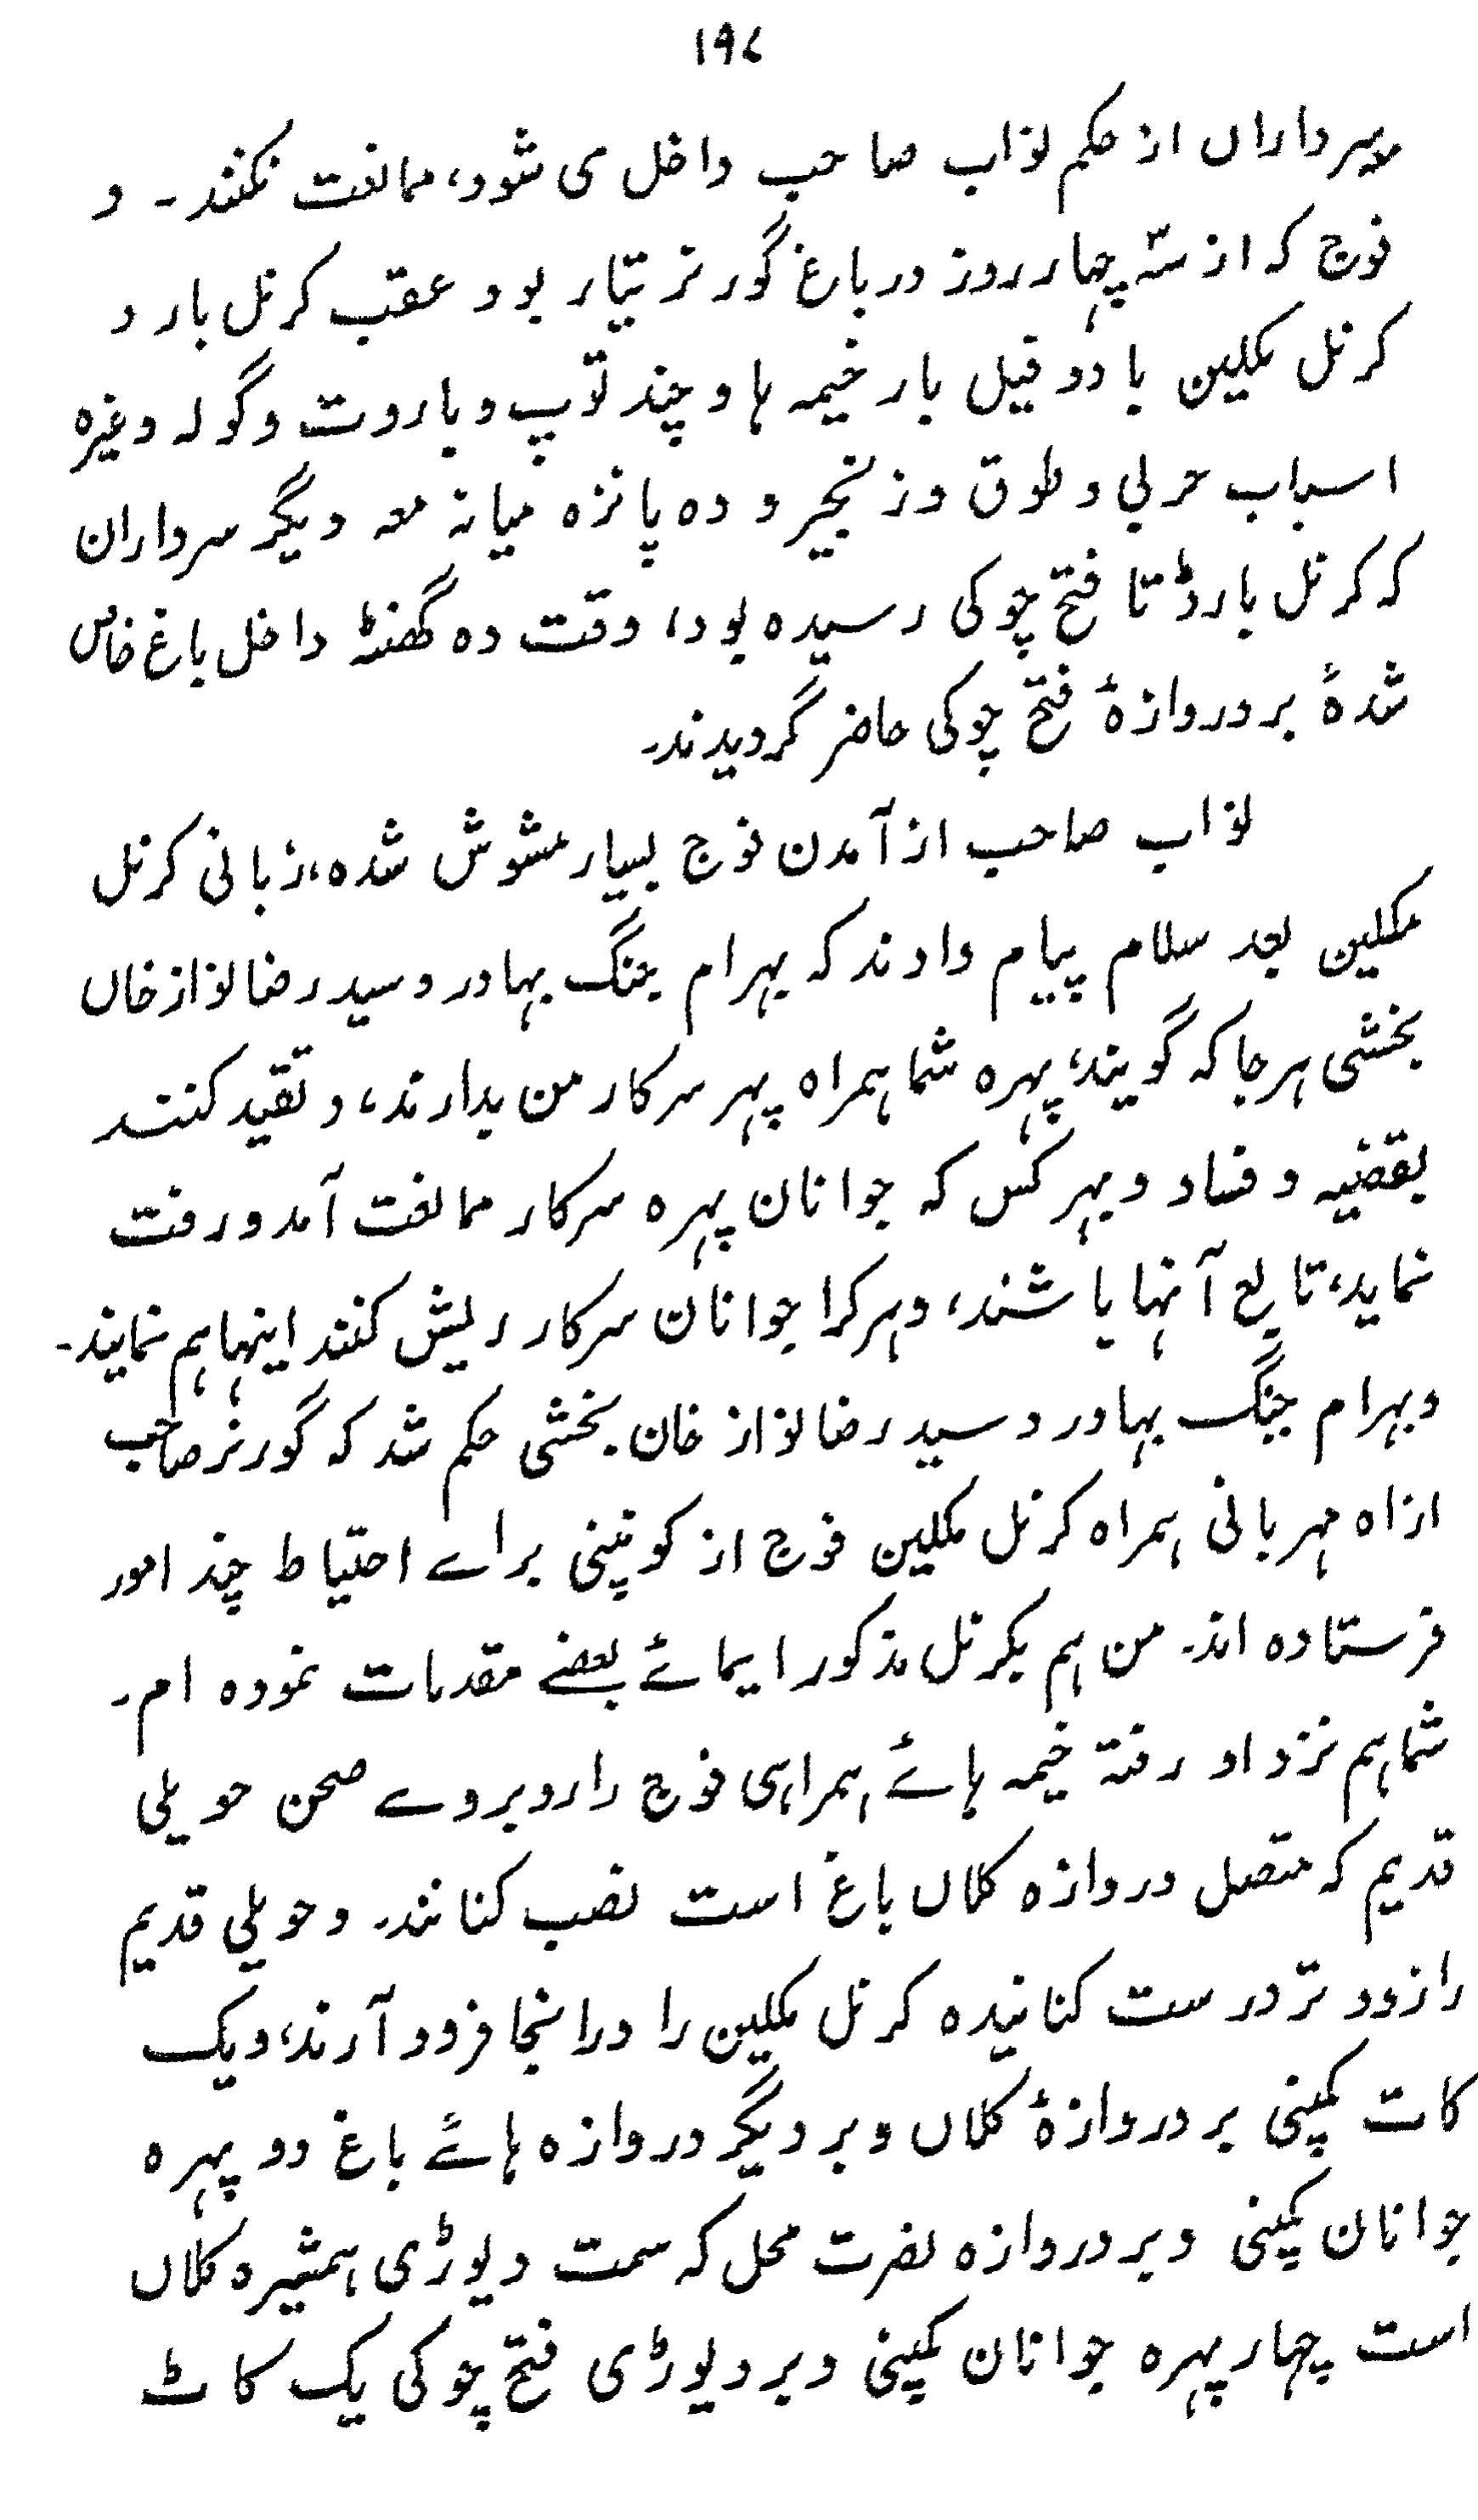 ۱۹۷
سرداراں از حکم نواب صاحب داخل می شود، ممانعت نکنند۔ و
فوج کہ از سہ چہار روز در باغ گورنر تیار بود عقب کرنل بارڈ
کرنل مکلین با دو فیل بار خیمہ ہا و چند توپ و باروت و گولہ وغیرہ
اسباب حربی و طوق و زنجیر و دہ پانزہ میانہ معہ دیگر سرداران
کہ کرنل بارڈ تا فتح چوکی رسیدہ بود، وقت دہ گھنٹہ داخل باغ خاص
شدہ بر دروازۂ فتح چوکی حاضر گردیدند۔
نواب صاحب از آمدن فوج بسیار مشوش شدہ، زبانی کرنل
مکلین بعد سلام پیام دادند کہ بہرام جنگ بہادر و سید رضا نواز خاں
بخشی ہر جا کہ گویند، پہرہ شما ہمراہ پہر سرکار من بدارند، و تقید کنند
بقضیہ و فساد و بہر کس کہ جوانان پہرہ سرکار ممانعت آمد و رفت
نماید، تابع آنہا باشند، و ہر کرا جوانان سرکار ریش کنند اینہا ہم نمایند۔
و بہرام جنگ بہادر و سید رضا نواز خان بخشی حکم شد کہ گورنر صاحب
از اہ مہربانی ہمراہ کرنل مکلین فوج از کوپنی براے احتیاط چند امور
فرستادہ اند۔ من ہم بکرنل مذکور ایمائے بعضے مقدمات نمودہ ام۔
شما ہم نزد او رفتہ خیمہ ہائے ہمراہی فوج را روبروے صحن حویلی
قدیم کہ متصل دروازہ کلاں باغ است نصب کنانند۔ و حویلی قدیم
را زود تر درست کنانیدہ کرنل مکلین را در اینجا فرود آرند، و یک
کات کمپنی بر دروازۂ کلاں و بر دیگر دروازہ ہائے باغ دو پہرہ
جوانان کمپنی و بر دروازہ نصرت محل کہ سمت دیوڑی ہمشیرہ کلاں
است چہار پہرہ جوانان کمپنی و بر دیوڑی فتح چوکی یک کاٹ